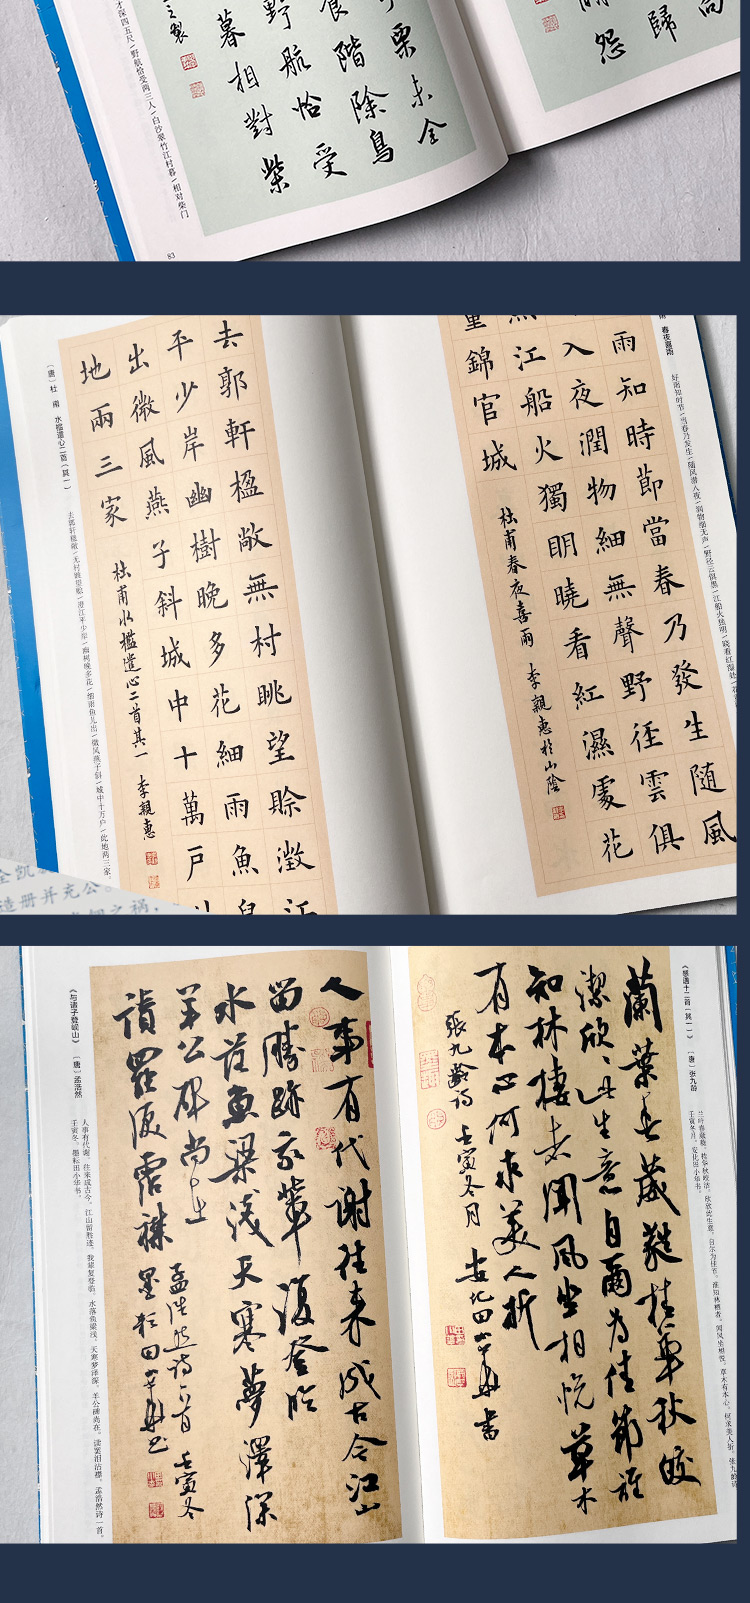 向
歸
怨
栗未全
食階除鳥
野航恰受
暮相對柴
之製
才深四五尺/野航恰受两三人/白沙翠竹江村暮/相对柴门
83
春夜喜雨
好雨知时节/当春乃发生/随风潜入夜/润物细无声/野径云俱黑/江船火独明/晓看红湿处/
雨知時節當春乃發生随風
入夜潤物細無聲野徑雲俱
江船火獨明曉看紅濕處花
重錦官城
杜甫春夜喜雨 李親惠於山陰
去郭軒楹敞無村眺望賒澂江
平少岸幽樹晚多花細雨魚
出微風燕子斜城中十萬戸
地兩三家
杜甫水檻遣心二首其一 李親惠
(唐)杜 甫 水槛遣心二首(其一)
去郭轩楹敞/无村眺望赊/澄江平少岸/幽树晚多花/细雨鱼儿出/微风燕子斜/城中十万户/此地两三家
造册并充公。
之祸,
《感遇十二首(其一)》 [唐]张九龄
兰叶春葳蕤,桂华秋皎洁。欣欣此生意,自尔为佳节。谁知林栖者,闻风坐相悦。草木有本心,何求美人折。张九龄诗
壬寅冬月,安化田小华书。
蘭葉春葳蕤桂華秋皎
潔欣々此生意自爾為佳節誰
知林棲者聞風坐相悦草木
有本心何求美人折
張九齡诗 壬寅冬月 安化田小華書
人事有代謝往来成古今江山
留勝跡我輩復登臨
水落魚梁淺天寒夢澤深
羊公碑尚在
讀罷淚霑襟
孟浩然诗一首 壬寅冬
墨耘田小華书
《与诸子登岘山》 [唐]孟浩然
人事有代谢,往来成古今。江山留胜迹,我辈复登临。水落鱼梁浅,天寒梦泽深。羊公碑尚在,读罢泪沾襟。孟浩然诗一首。
壬寅冬,墨耘田小华书。